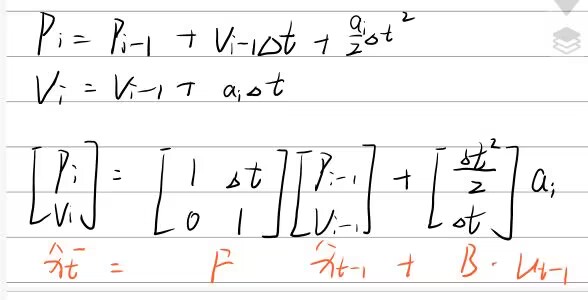 Pᵢ = Pᵢ₋₁ + Vᵢ₋₁Δt + aᵢ/2 Δt²
Vᵢ = Vᵢ₋₁ + aᵢΔt
[Pᵢ; Vᵢ] = [1 Δt; 0 1] [Pᵢ₋₁; Vᵢ₋₁] + [Δt²/2; Δt] aᵢ
x̂ₜ⁻ = F x̂ₜ₋₁ + B · uₜ₋₁